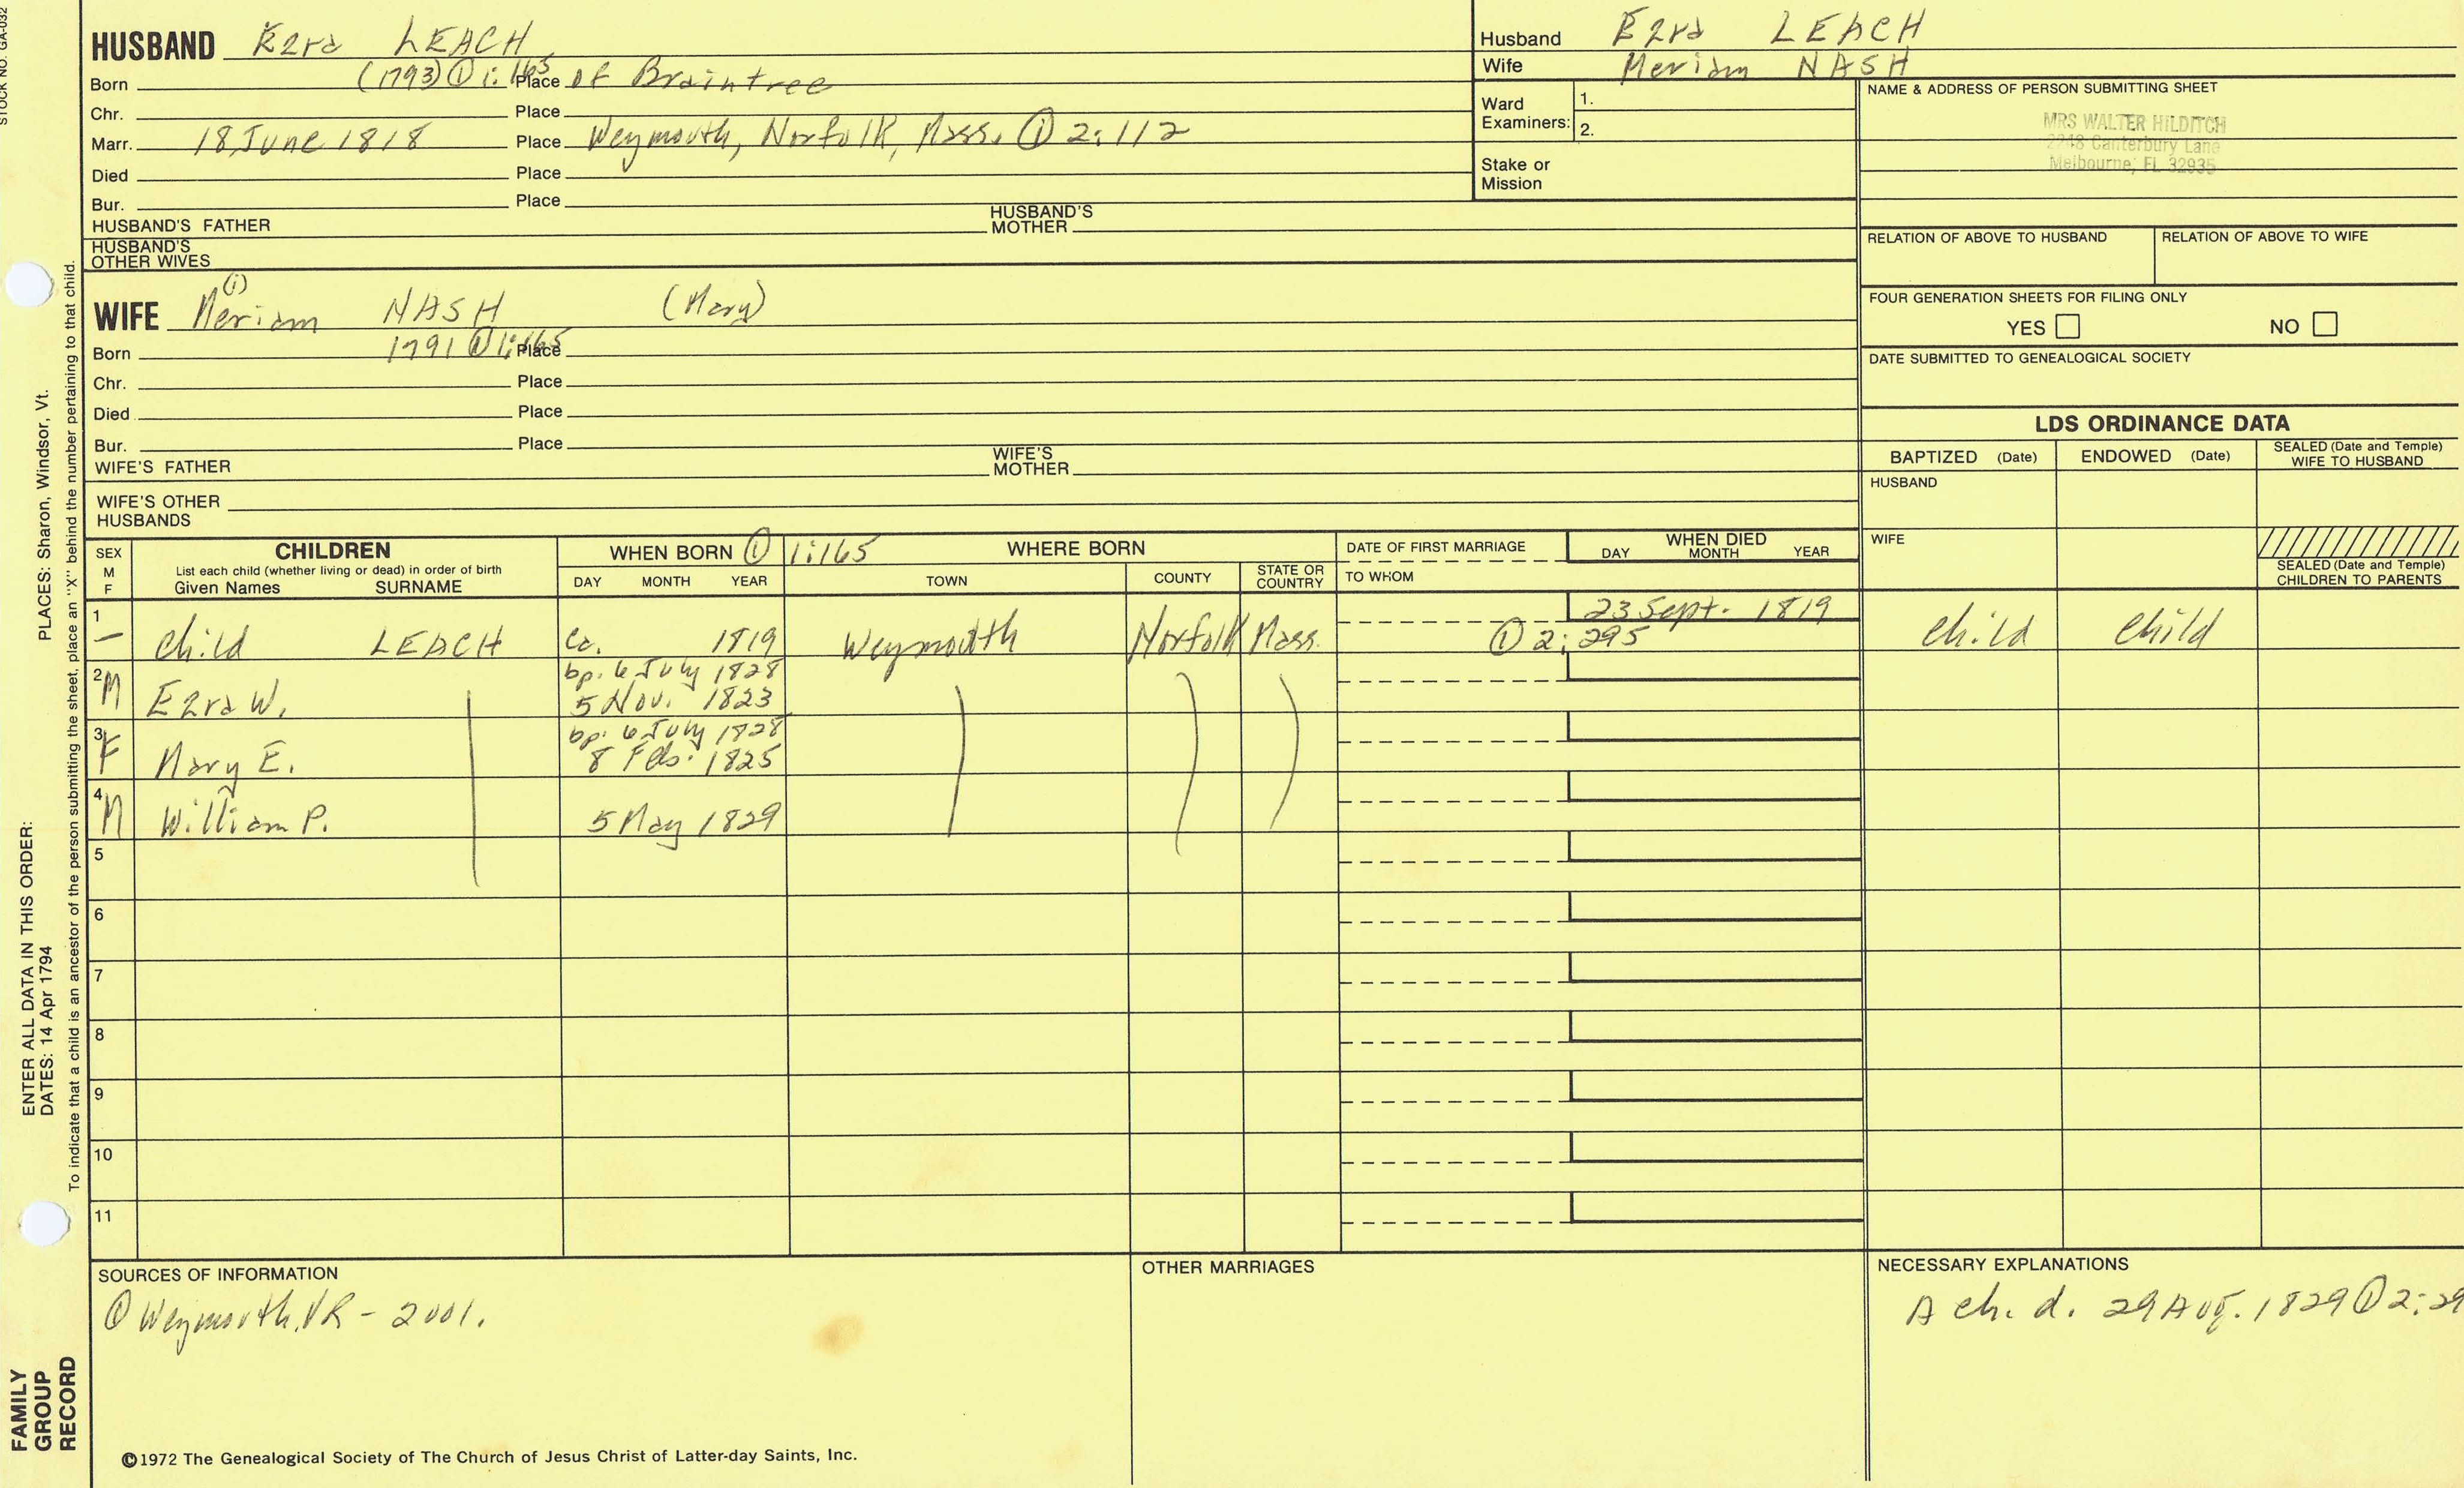 STOCK NO. GA-032
HUSBAND Ezra LEACH
Born (1793) ① 1:165 Place of Braintree
Chr. Place
Marr. 18 June 1818 Place Weymouth, Norfolk, Mass. ① 2:112
Died Place
Bur. Place
HUSBAND'S FATHER HUSBAND'S MOTHER
HUSBAND'S OTHER WIVES
Husband Ezra LEACH
Wife Meriam NASH
Ward Examiners: 1.
2.
Stake or Mission
NAME & ADDRESS OF PERSON SUBMITTING SHEET
MRS WALTER HILDITCH
2248 Canterbury Lane
Melbourne, FL 32935
RELATION OF ABOVE TO HUSBAND RELATION OF ABOVE TO WIFE
FOUR GENERATION SHEETS FOR FILING ONLY
YES NO
DATE SUBMITTED TO GENEALOGICAL SOCIETY
(i)
WIFE Meriam NASH (Mary)
Born 1791 ① 1:165 Place
Chr. Place
Died Place
Bur. Place
WIFE'S FATHER WIFE'S MOTHER
WIFE'S OTHER HUSBANDS
LDS ORDINANCE DATA
BAPTIZED (Date) ENDOWED (Date) SEALED (Date and Temple) WIFE TO HUSBAND
HUSBAND
WIFE
SEALED (Date and Temple) CHILDREN TO PARENTS
SEX M F
CHILDREN
List each child (whether living or dead) in order of birth
Given Names SURNAME
WHEN BORN ① 1:165
DAY MONTH YEAR
WHERE BORN
TOWN COUNTY STATE OR COUNTRY
DATE OF FIRST MARRIAGE
TO WHOM
WHEN DIED
DAY MONTH YEAR
1 – Child LEACH Ca. 1819 Weymouth Norfolk Mass. 23 Sept. 1819
① 2:295 Child Child
2 M Ezra W. bp. 6 July 1828
5 Nov. 1823
3 F Mary E. bp. 6 July 1828
8 Feb. 1825
4 M William P. 5 May 1829
5
6
7
8
9
10
11
SOURCES OF INFORMATION
① Weymouth, VR - 2001.
OTHER MARRIAGES
NECESSARY EXPLANATIONS
A ch. d. 29 Aug. 1829 ① 2:29
©1972 The Genealogical Society of The Church of Jesus Christ of Latter-day Saints, Inc.
FAMILY GROUP RECORD
ENTER ALL DATA IN THIS ORDER:
DATES: 14 Apr 1794 PLACES: Sharon, Windsor, Vt.
To indicate that a child is an ancestor of the person submitting the sheet, place an "X" behind the number pertaining to that child.